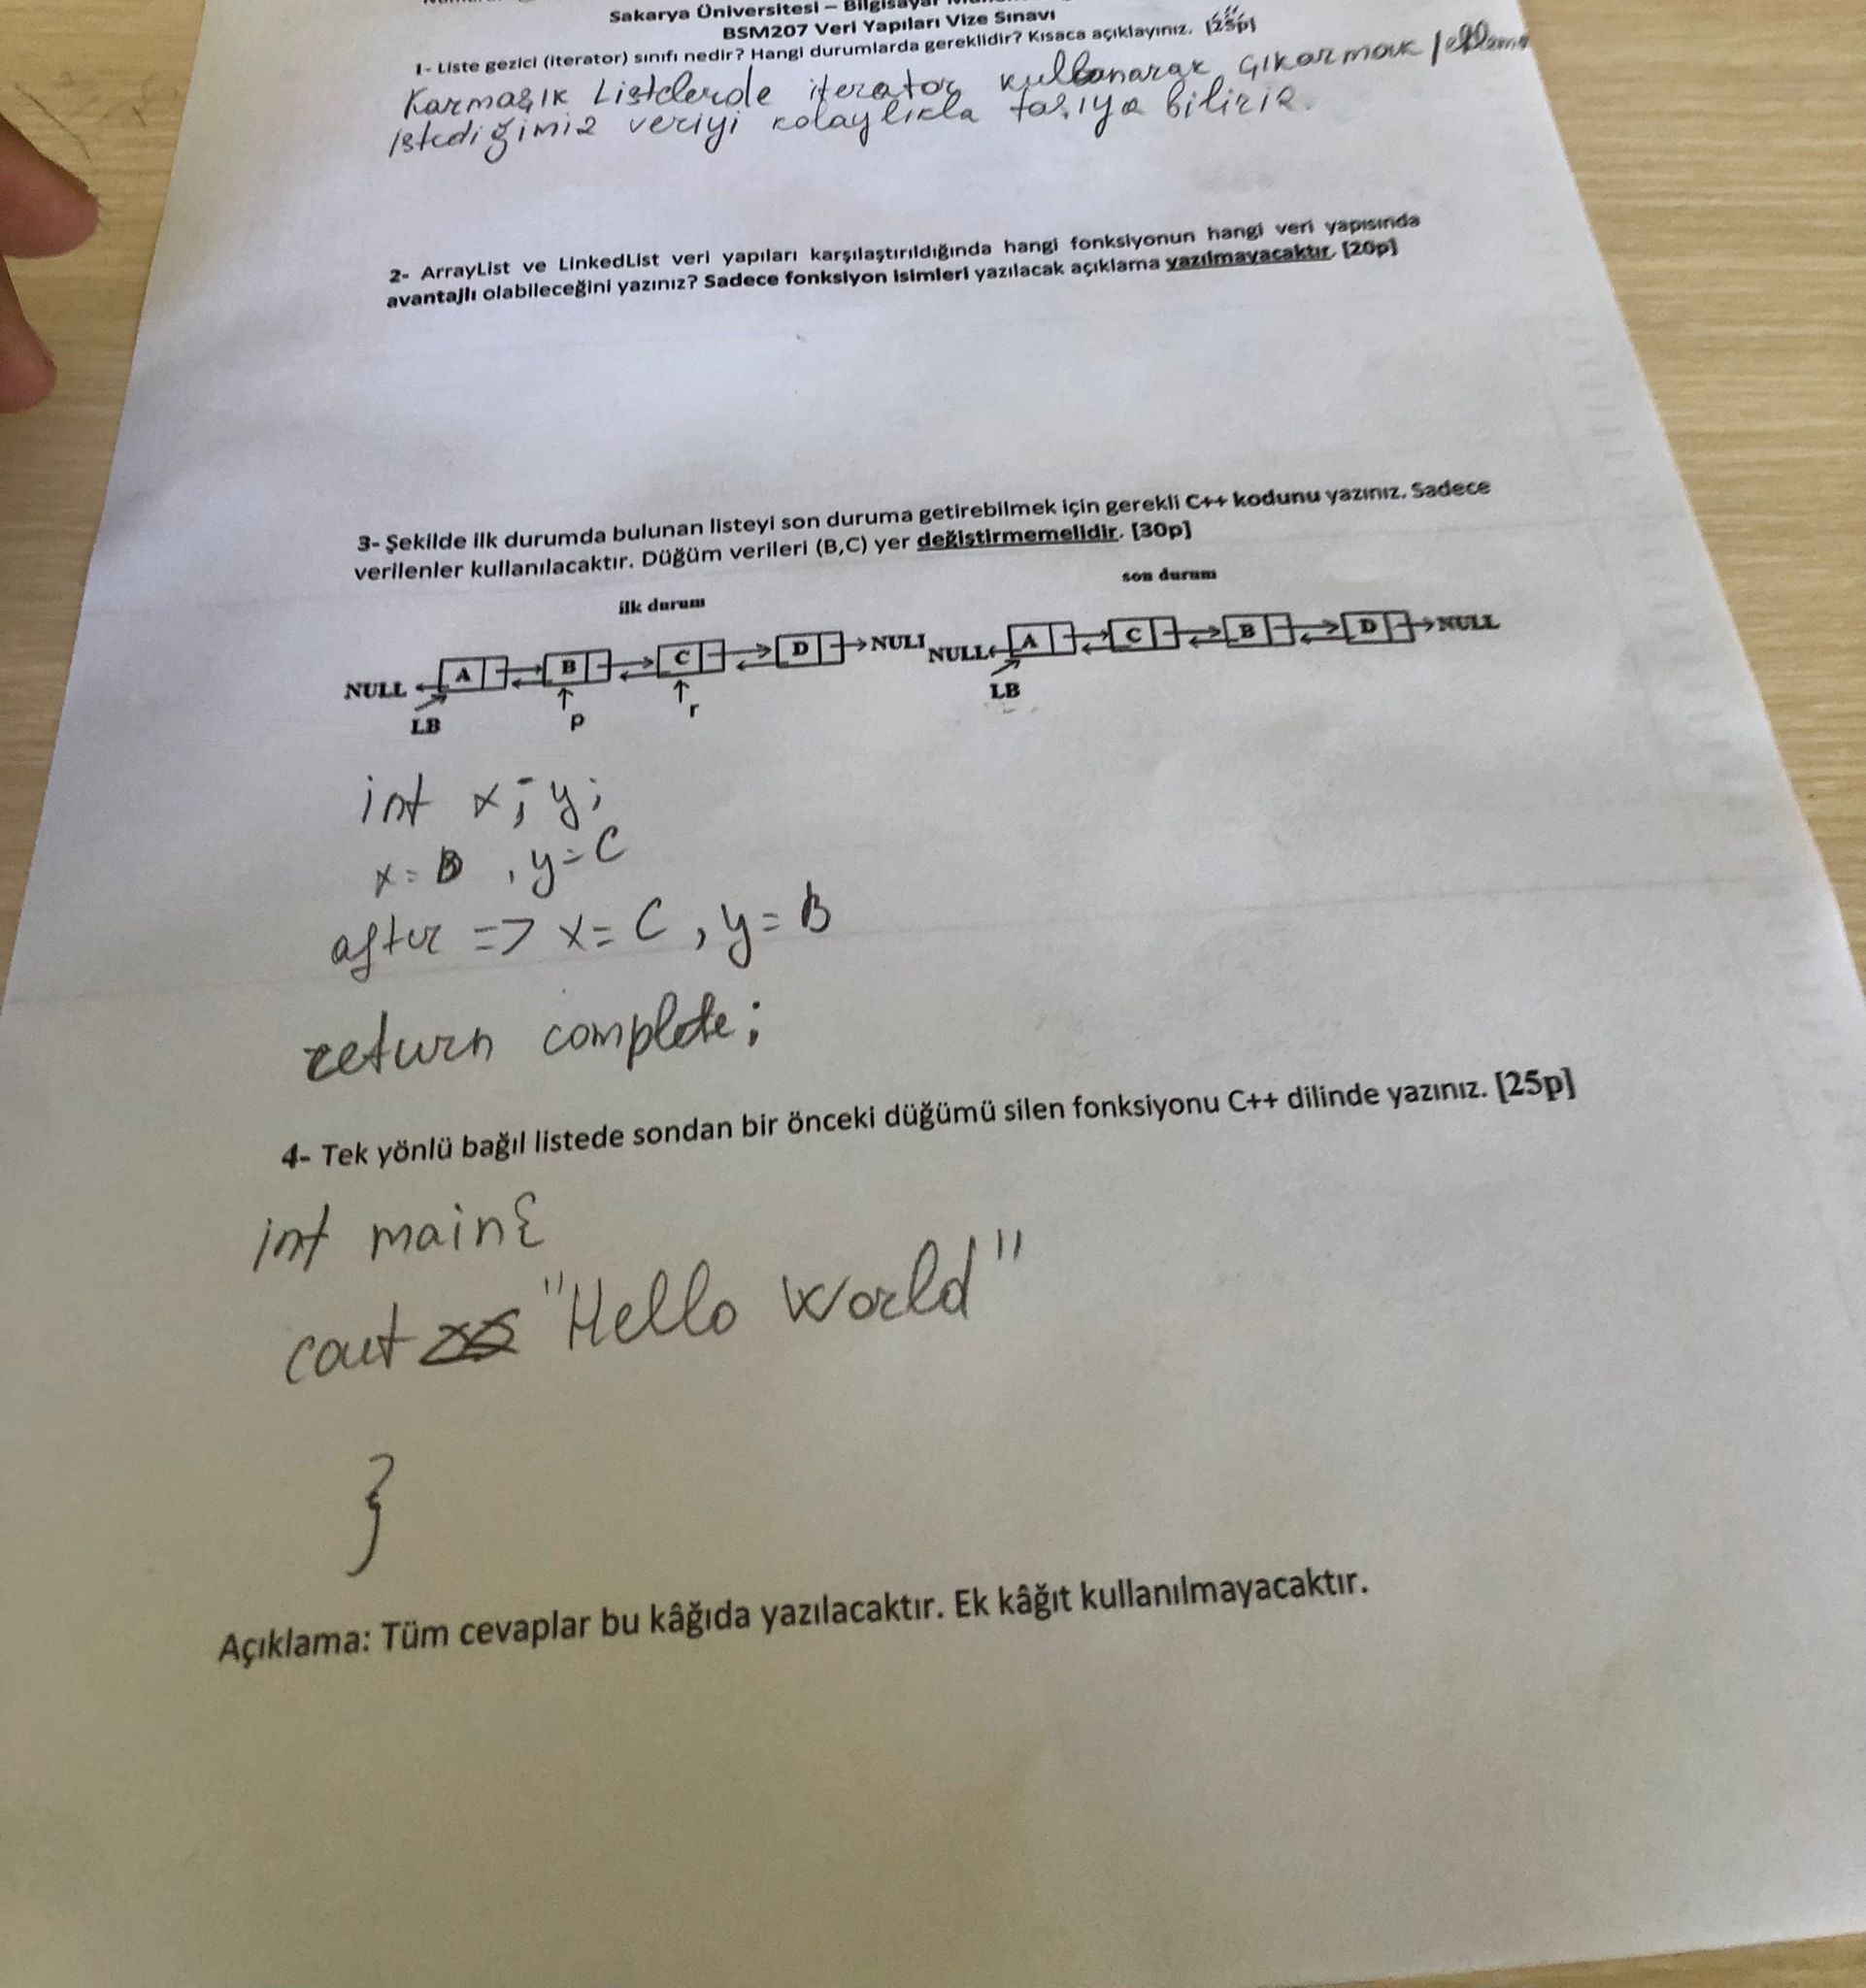 Sakarya Üniversitesi – Bilgisayar
BSM207 Veri Yapıları Vize Sınavı
1- Liste gezici (iterator) sınıfı nedir? Hangi durumlarda gereklidir? Kısaca açıklayınız. [25p]
Karmaşık Listelerde iterator kullanarak çıkarmak
istediğimiz veriyi kolaylıkla taşıya biliriz.
2- ArrayList ve LinkedList veri yapıları karşılaştırıldığında hangi fonksiyonun hangi veri yapısında
avantajlı olabileceğini yazınız? Sadece fonksiyon isimleri yazılacak açıklama yazılmayacaktır. [20p]
3- Şekilde ilk durumda bulunan listeyi son duruma getirebilmek için gerekli C++ kodunu yazınız. Sadece
verilenler kullanılacaktır. Düğüm verileri (B,C) yer değiştirmemelidir. [30p]
ilk durum
son durum
NULL A B C D NULL
LB p r
NULL A C B D NULL
LB
int x; y;
x = B , y = C
after => x = C , y = B
return complete;
4- Tek yönlü bağıl listede sondan bir önceki düğümü silen fonksiyonu C++ dilinde yazınız. [25p]
int main{
cout "Hello World"
}
Açıklama: Tüm cevaplar bu kâğıda yazılacaktır. Ek kâğıt kullanılmayacaktır.